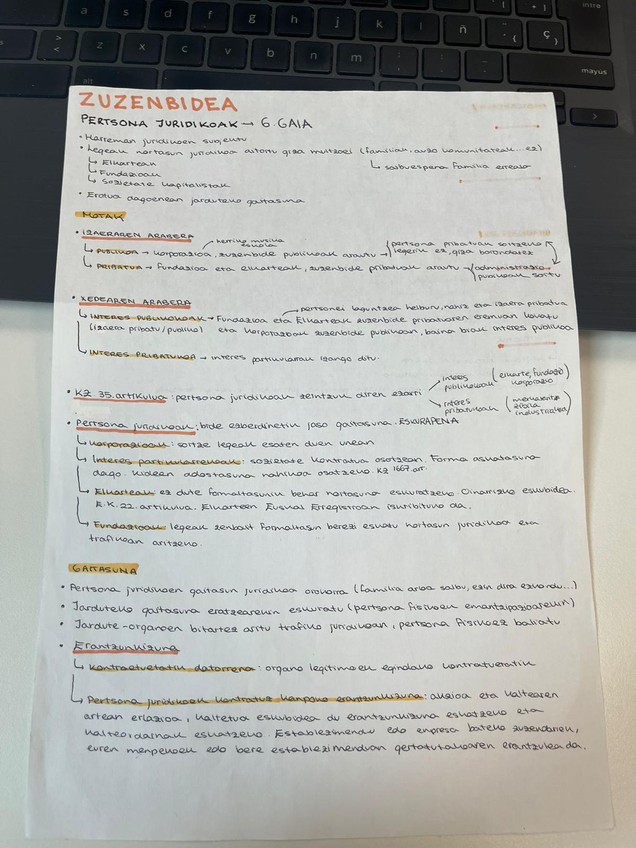 a s d f g h j k l ñ
> < z x c v b n m ; : _ ç intro
alt mayus
ZUZENBIDEA
PERTSONA JURIDIKOAK → 6. GAIA
• Harreman juridikoen subjektu
• Legeak nortasun juridikoa aitortu giza multzoei (familiak, auzo komunitateak ez)
↳ Elkarteak
↳ salbuespena familia erreala
↳ Fundazioak
↳ Sozietate kapitalistak
• Eratua dagoenean jarduteko gaitasuna
MOTAK
• IZAERAREN ARABERA
herriko musika eskola
↳ PUBLIKOA → korporazioa, zuzenbide publikoak arautu → pertsona pribatuak sortzeko legerik ez, giza borondatez
↳ PRIBATUA → Fundazioa eta elkarteak, zuzenbide pribatuak arautu → administrazio publikoak sortu
• XEDEAREN ARABERA
pertsonei laguntzea helburu, nahiz eta izaera pribatua
↳ INTERES PUBLIKOKOAK → Fundazioa eta Elkarteak zuzenbide pribatuaren eremuan kokatu
(izaera pribatu/publiko) eta korporazioak zuzenbide publikoan, baina biak interes publikoa
↳ INTERES PRIBATUKOA → interes partikularrak izango ditu.
• KZ 35. artikulua: pertsona juridikoak zeintzuk diren ezarri
interes publikokoak (elkarte, fundazio korporazio)
interes pribatukoak (merkataritza zibila industrialea)
• Pertsona juridikoak: bide ezberdinetik jaso gaitasuna. ESKURAPENA
↳ Korporazioak: sortze legeak esaten duen unean
↳ Interes partikularrekoak: sozietate kontratua osatzean. Forma askatasuna
dago. Kideen adostasuna nahikoa osatzeko. KZ 1667. art.
↳ Elkarteak: ez dute formaltasunik behar nortasuna eskuratzeko Oinarrizko eskubidea.
E.K. 22. artikulua. Elkarteen Euskal Erregistroan inskribituko da.
↳ Fundazioak: legeak zenbait formaltasun berezi eskatu nortasun juridikoa eta
trafikoan aritzeko.
GAITASUNA
• Pertsona juridikoen gaitasun juridikoa orokorra (familia arloa salbu, ezin dira ezkondu...)
• Jarduteko gaitasuna eratzearekin eskuratu (pertsona fisikoek emantzipazioarekin)
• Jardute-organoen bitartez aritu trafiko juridikoan, pertsona fisikoez baliatu
• Erantzunkizuna
↳ Kontratuetatik datorrena: organo legitimoek egindako kontratuetatik
↳ Pertsona juridikoek kontratuz kanpoko erantzunkizuna: akzioa eta kaltearen
artean erlazioa, kaltetua eskubidea du erantzunkizuna eskatzeko eta
kalte-ordainak eskatzeko. Establezimendu edo enpresa bateko zuzendariek,
euren menpekoek edo bere establezimenduan gertatutakoaren erantzulea da.